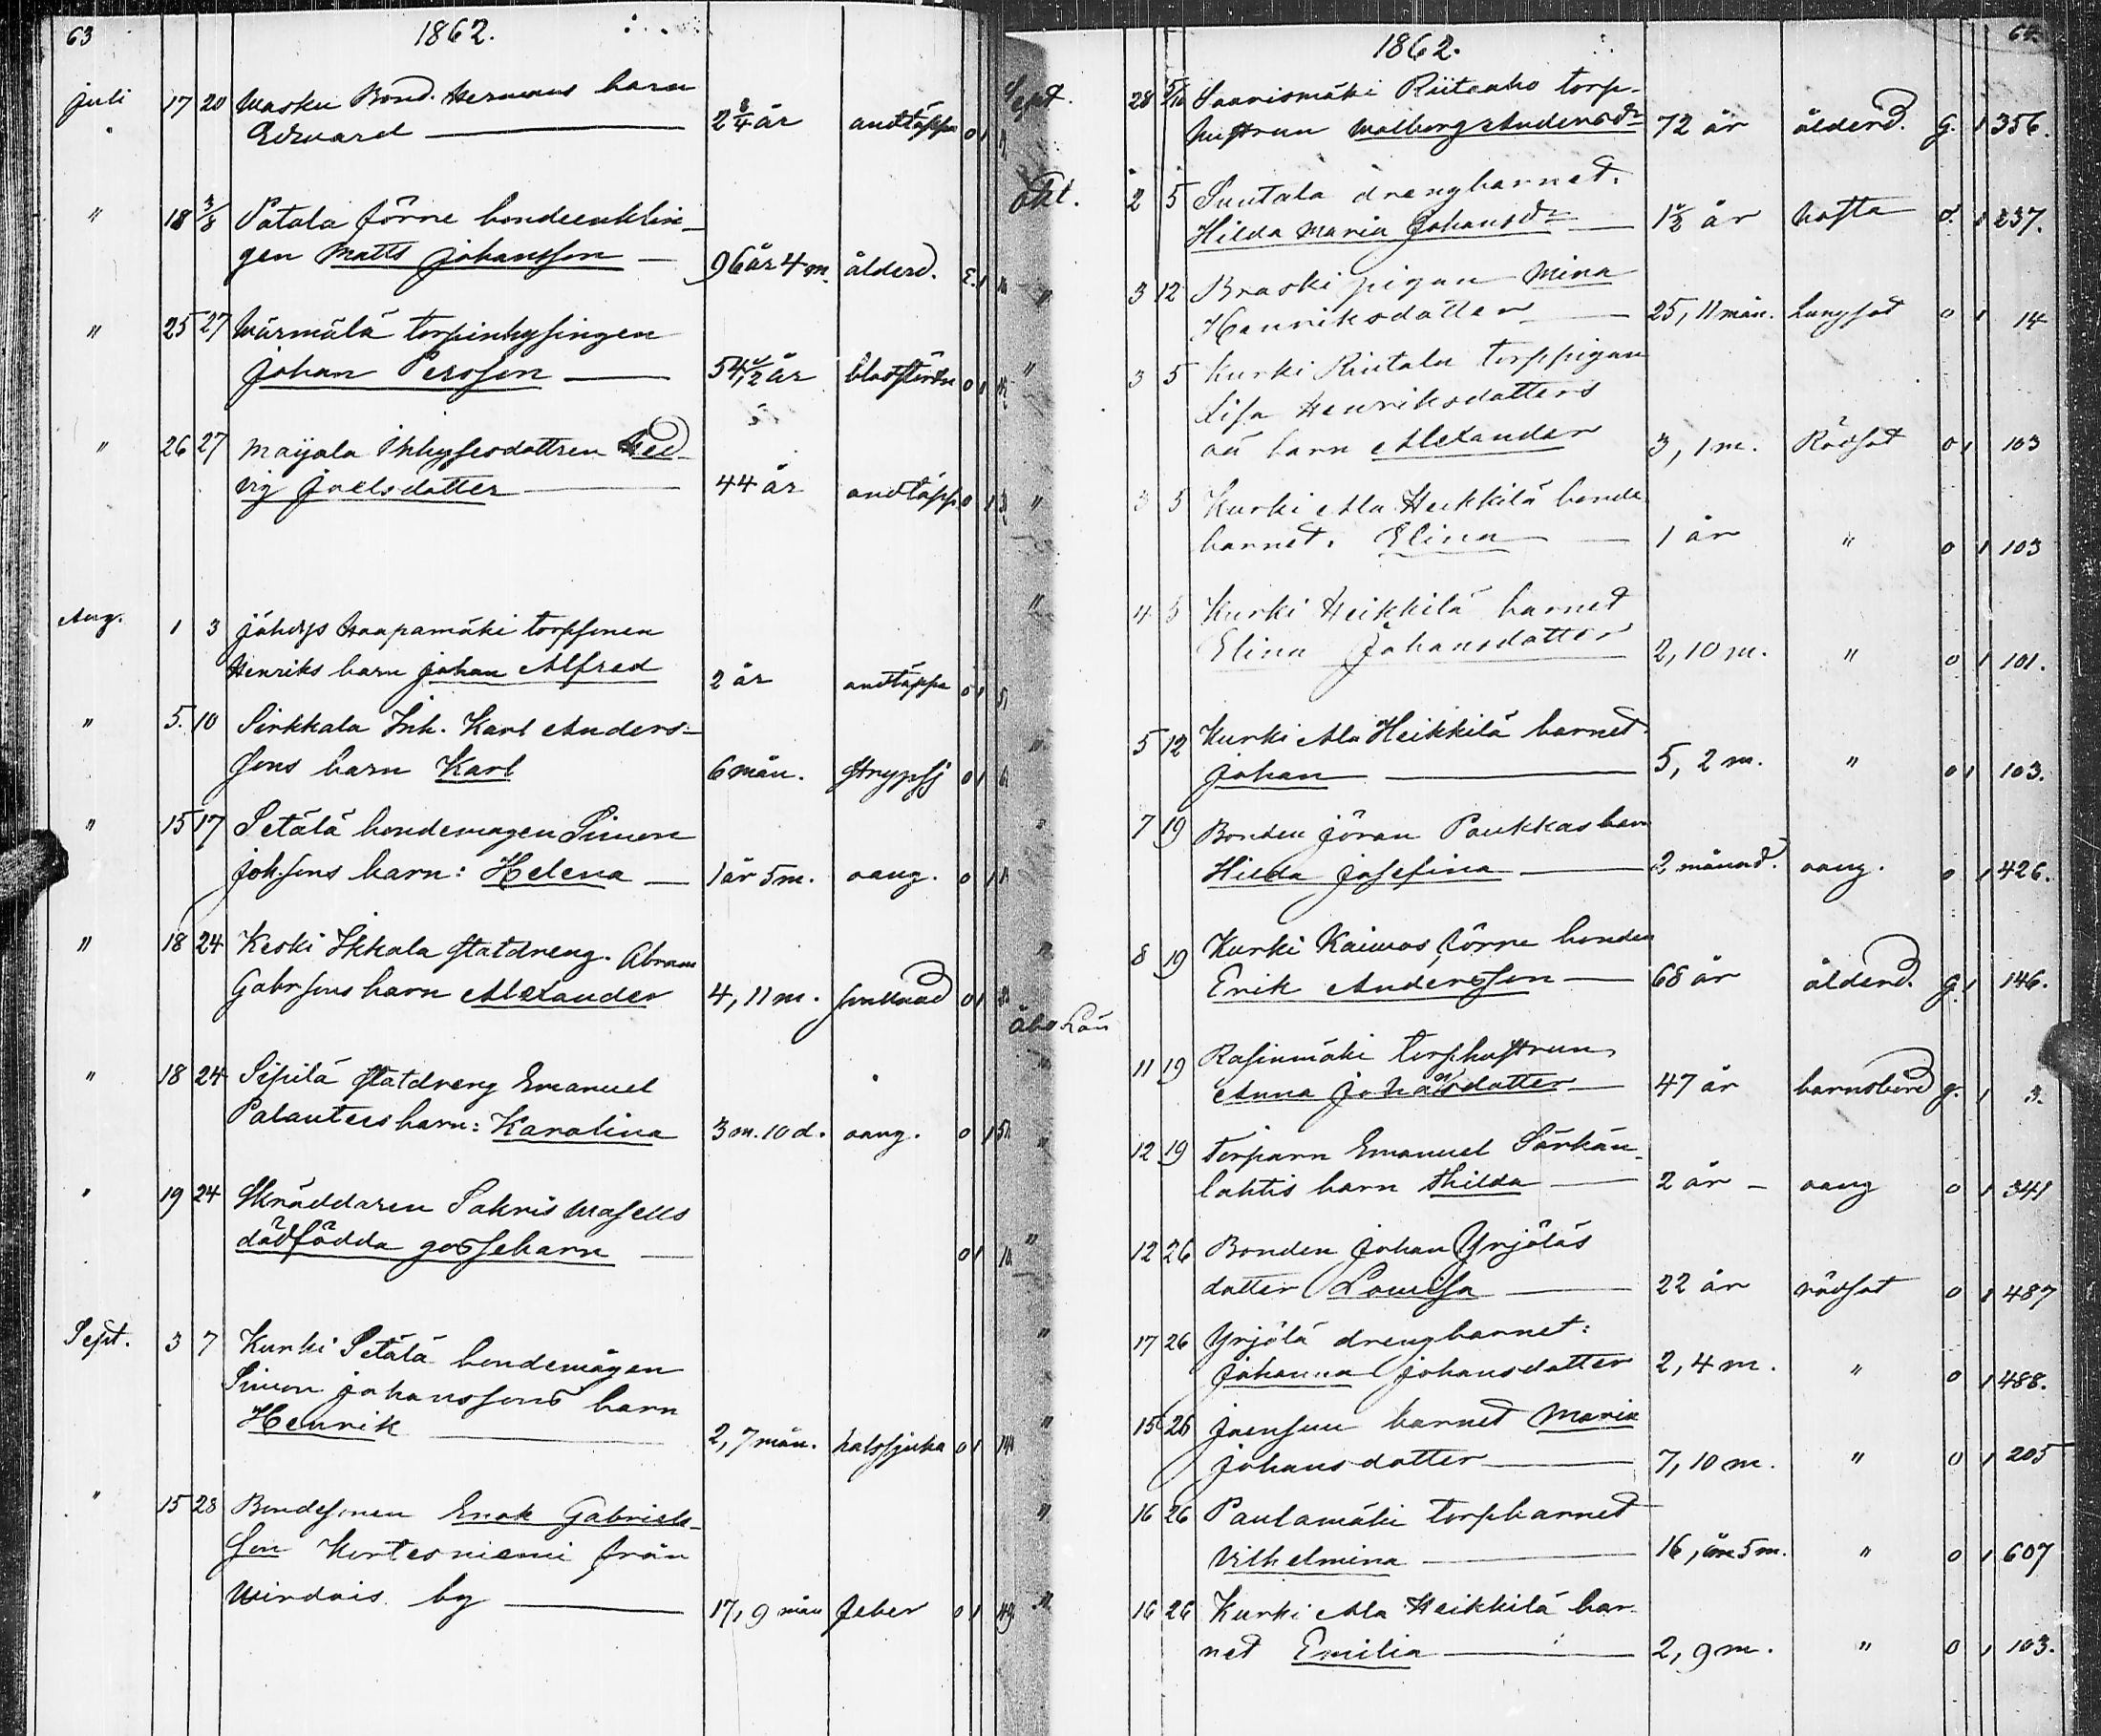 63
1862.
juli 17 20 Wasku Bond. Hermans barn
" Edvard 2 3/4 år andtäppa 0 1
" 18 3/8 Patala förre bondeenklin-
gen Matts Johansson 96 år 4 m. ålderd. E. 1
" 25 27 Wärmälä torpinhysingen
Johan Persson 54, 1/2 år blodstörtn 0 1
" 26 27 Maijala Inhysesdottren Hed-
vig Joelsdotter 44 år andtäpp 0 1
Aug. 1 3 Jähdys Haapamäki torpsonen
Henriks barn Johan Alfred 2 år andtäppa 0 1
" 5. 10 Sirkkala Inh. Karl Anders-
sons barn Karl 6 mån. strypsj 0 1
" 15 17 Setälä bondemågen Simon
Johsons barn: Helena 1 år 5 m. oang. 0 1
" 18 24 Keski Ikkala statdreng. Abram
Gabrsons barn Alexander 4, 11 m. 0 1
" 18 24 Sipilä statdreng Emanuel
Palanters barn: Karolina 3 m. 10 d. oang. 0 1
" 19 24 Skräddaren Sakris Wasells
dödfödda gossebarn 0 1
Sept. 3 7 Kurki Setälä bondemågen
Simon Johanssons barn
Henrik 2, 7 mån. halssjuka 0 1
" 15 28 Bondesonen Enok Gabriels-
son Kortesniemi från
Wirdois by 17, 9 mån feber 0 1
1862.
Sept. 28 5/10 Saarismäki Riitaaho torp-
hustrun Walborg Andersdr 72 år ålderd. g. 1 356.
Okt. 2 5 Suutala drengbarnet.
Hilda Maria Johansdr 1 1/2 år hosta 0. 1 237.
" 3 12 Braski pigan Mina
Henriksdotter 25, 11 mån. Lungsot 0 1 14
" 3 5 Kurki Rintala torppigan
Lisa Henriksdotters
oä barn Alexander 3, 1 m. Rödsot 0 1 103
" 3 5 Kurki Ala Heikkilä bonde
barnet. Elina 1 år " 0 1 103
" 4 5 Kurki Heikkilä barnet
Elina Johansdotter 2, 10 m. " 0 1 101.
" 5 12 Kurki Ala Heikkilä barnet
Johan 5, 2 m. " 0 1 103.
" 7 19 Bonden Jöran Paukkas barn
Hilda Josefina 2 månad. oang. 0 1 426.
" 8 19 Kurki Kaivos förre bonden
Erik Andersson 68 år ålderd. g. 1 146.
Åbo Län
" 11 19 Rasinmäki torphustrun
Anna Johansdotter 47 år barnsbörd g. 1 3.
" 12 19 torparn Emanuel Särkän-
lahtis barn Hilda 2 år oang 0 1 341
" 12 26 Bonden Johan Yrjöläs
dotter Lowisa 22 år rödsot 0 1 487
" 17 26 Yrjölä drengbarnet:
Johanna Johansdotter 2, 4 m. " 0 1 488.
" 15 26 Joensuu barnet Maria
Johansdotter 7, 10 m. " 0 1 205
" 16 26 Paulamäki torpbarnet
Vilhelmina 16, år 5 m. " 0 1 607
" 16 26 Kurki Ala Heikkilä bar-
net Emilia 2, 9 m. " 0 1 103.